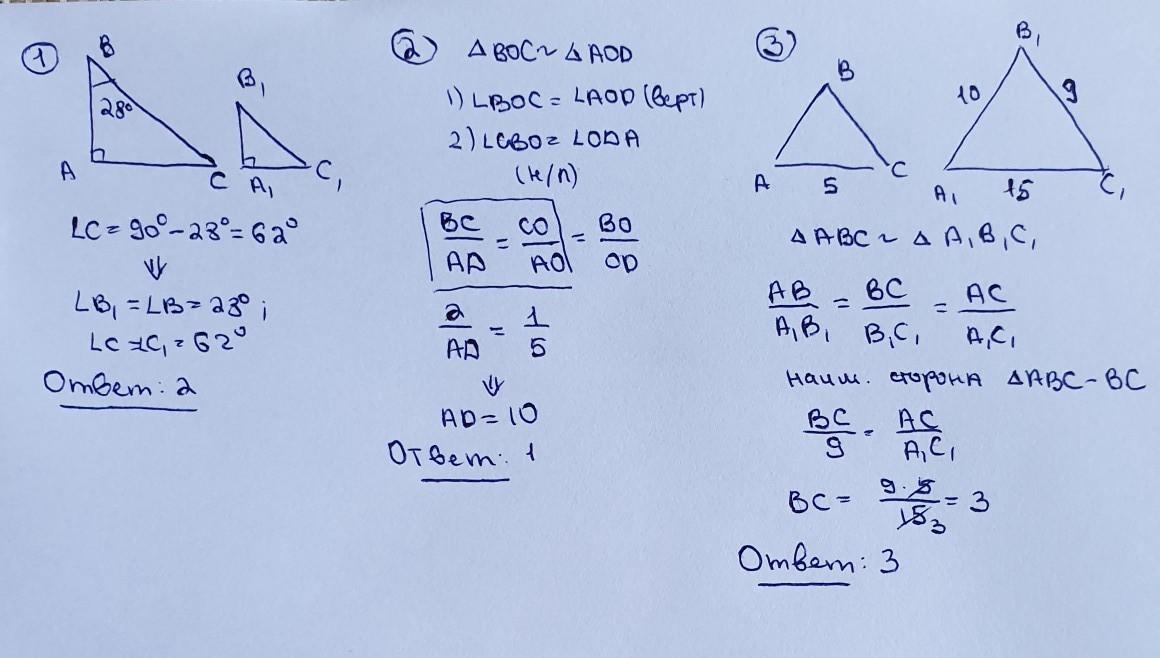 ①
B
28°
A
C
B₁
A₁
C₁
∠C = 90° - 28° = 62°
⇓
∠B₁ = ∠B = 28° ;
∠C = ∠C₁ = 62°
Ответ: 2
②
△BOC ~ △AOD
1) ∠BOC = ∠AOD (верт)
2) ∠CBO = ∠ODA
(н/л)
BC/AD = CO/AO = BO/OD
2/AD = 1/5
⇓
AD = 10
Ответ: 1
③
B
A
5
C
B₁
10
9
A₁
15
C₁
△ABC ~ △A₁B₁C₁
AB/A₁B₁ = BC/B₁C₁ = AC/A₁C₁
наим. сторона △ABC - BC
BC/9 = AC/A₁C₁
BC = 9·5/15 3 = 3
Ответ: 3